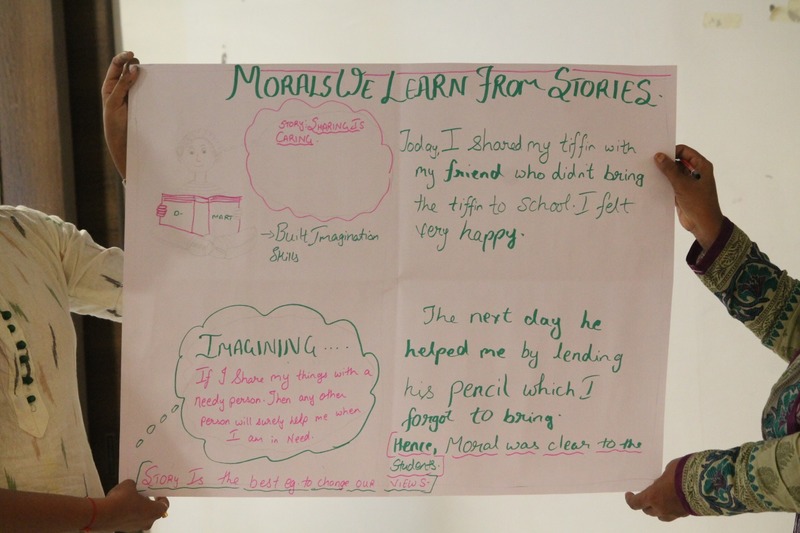 MORALS WE LEARN FROM STORIES.
STORY: SHARING IS
CARING.
D- MART
→ Built Imagination
Skills
Today, I shared my tiffin with
my friend who didn't bring
the tiffin to school. I felt
very happy.
IMAGINING....
If I share my things with a
needy person. Then any other
person will surely help me when
I am in need.
STORY IS the best eg. to change our VIEWS.
The next day he
helped me by lending
his pencil which I
forgot to bring.
Hence, Moral was clear to the
Students.